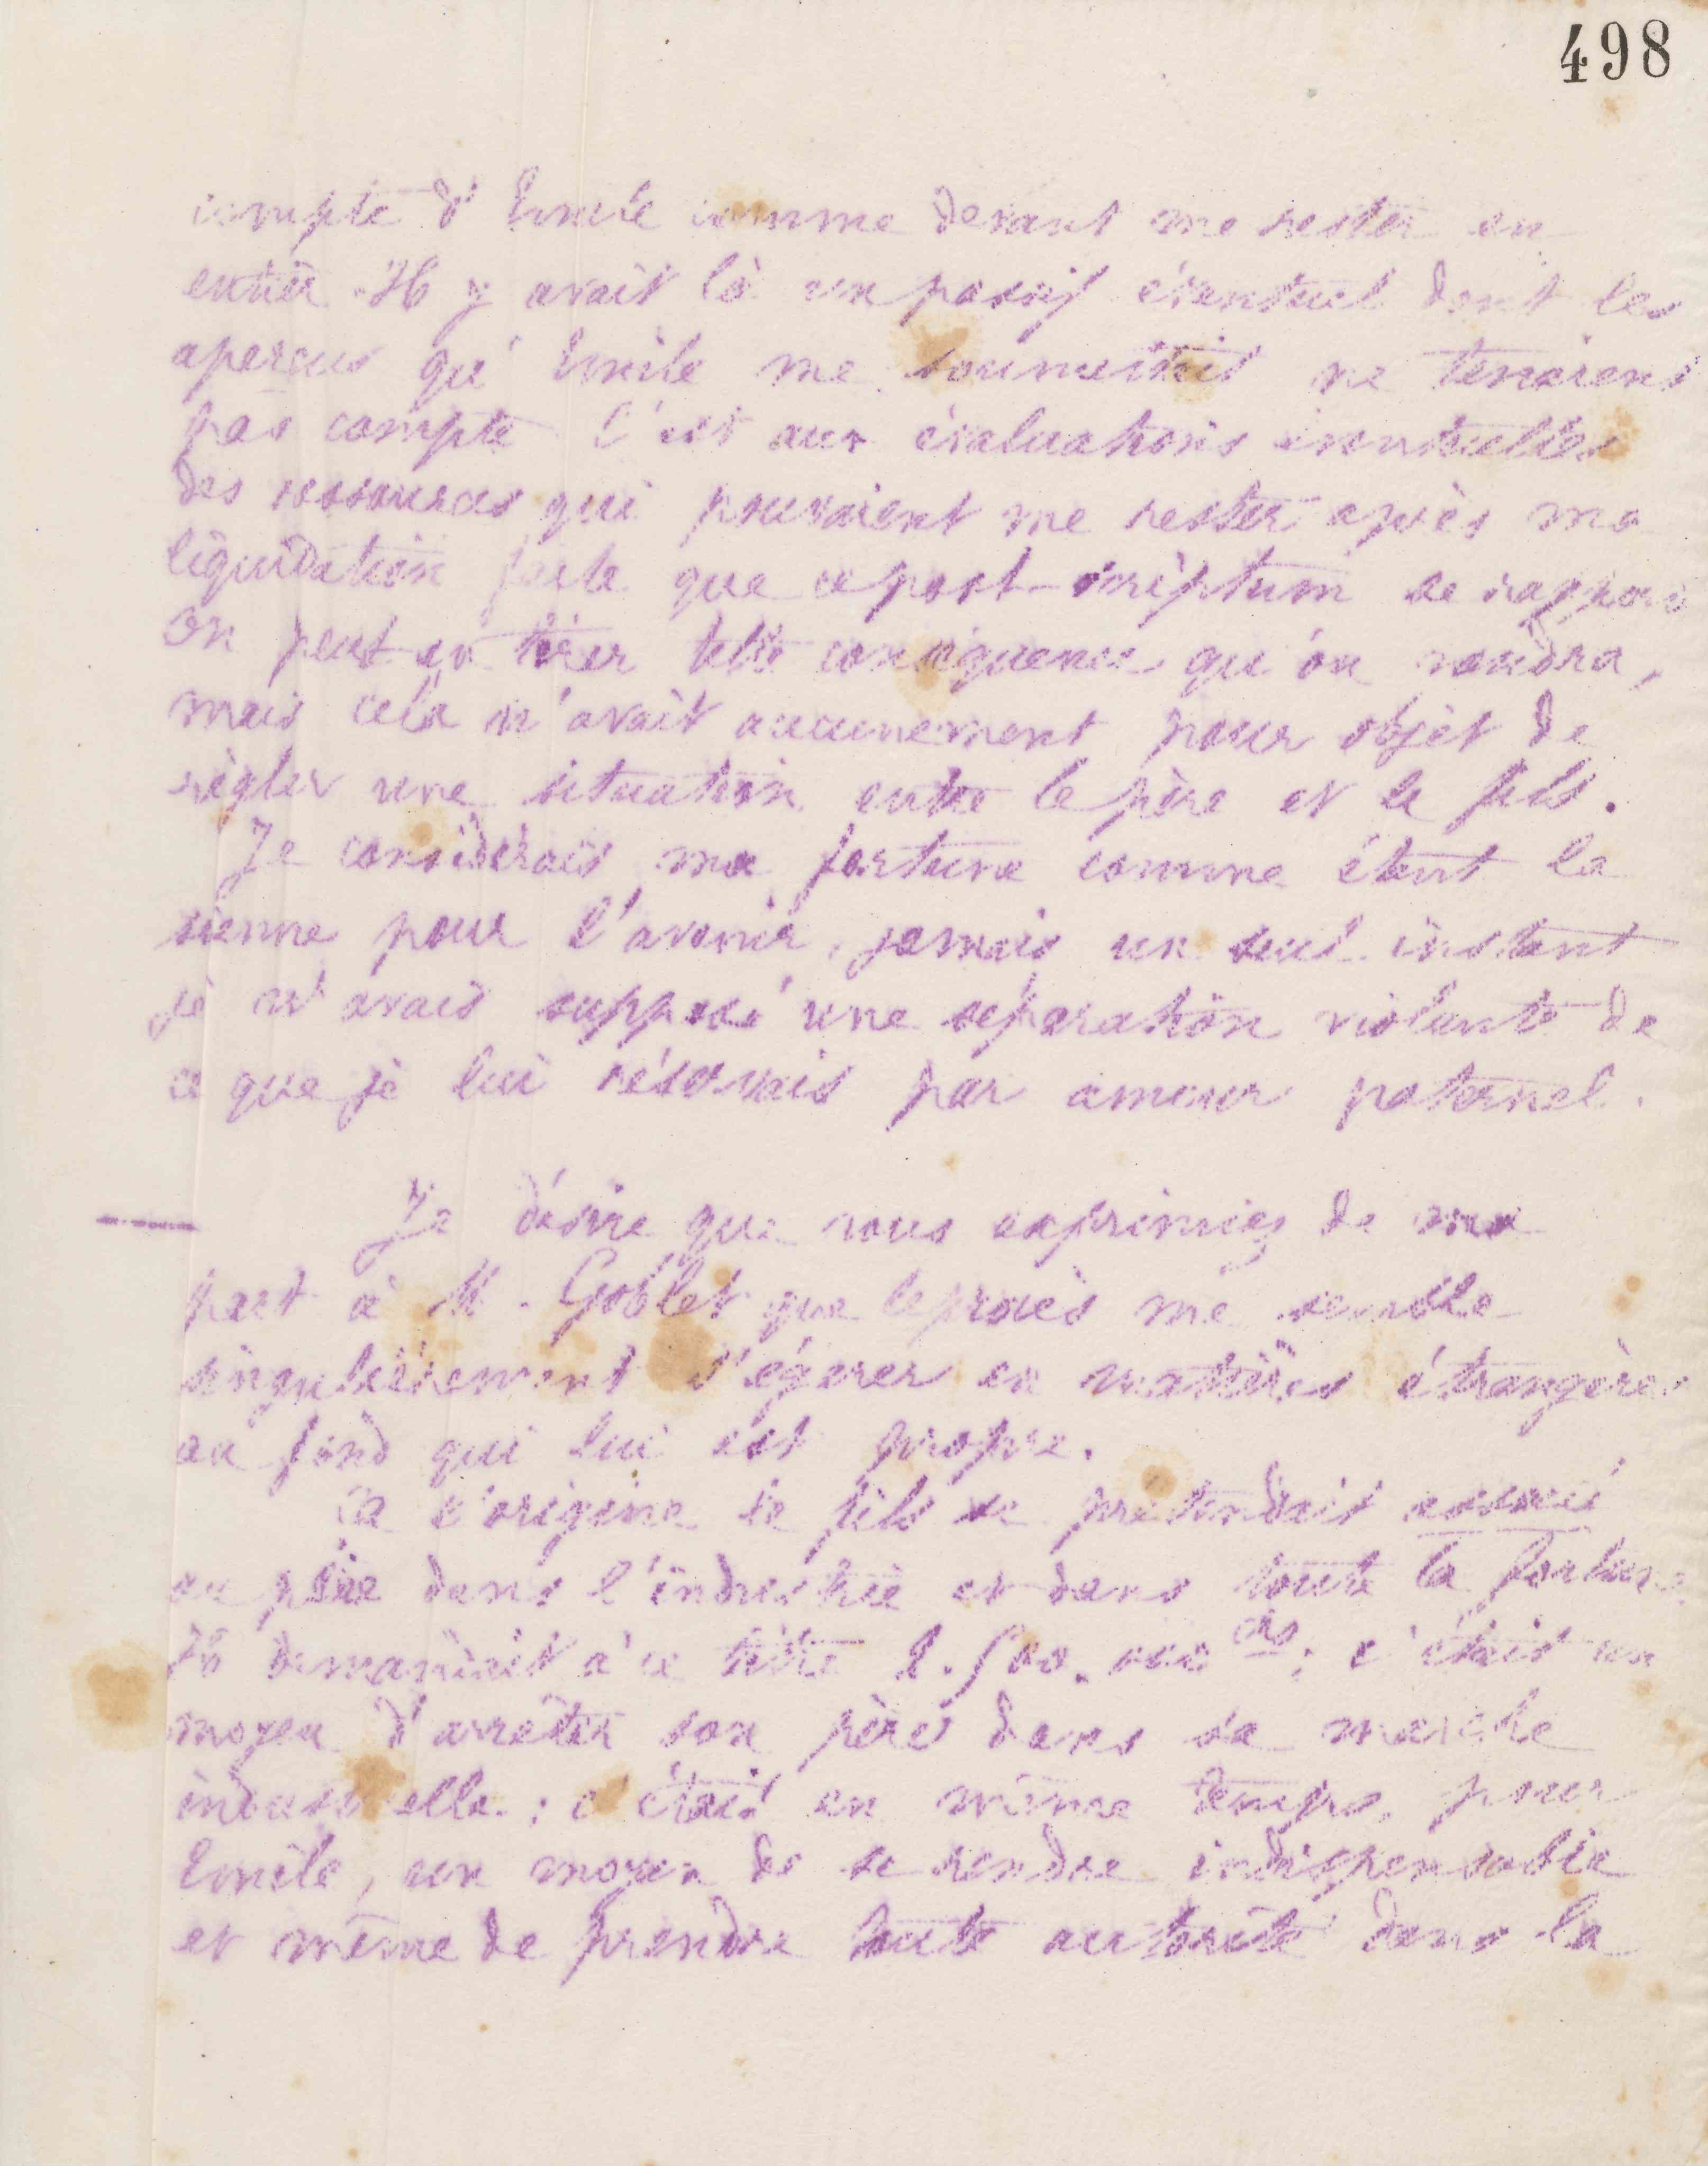 498
compte d'Emile comme devant me rester en
entier. Il y avait là un passif éventuel dont les
aperçus qu'Emile me soumettait ne tenaient
pas compte C'est aux évaluations éventuelles
des ressources qui pouvaient me rester après ma
liquidation faite que ce post-scriptum se rapporte
On peut en tirer telle conséquence qu'on voudra,
mais cela n'avait aucunement pour objet de
régler une situation entre le père et le fils.
Je considérais ma fortune comme étant la
sienne pour l'avenir, jamais un seul instant
je n'avais supposé une séparation violente de
ce que je lui réservais par amour paternel.
Je désire que vous exprimiez de ma
part à M. Goblet que le procès me semble
singulièrement s'égarer en matières étrangères
au fond qui lui est propre.
A l'origine le fils se prétendait associé
au père dans l'industrie et dans toute la fortune
Il demandait à ce titre 2.500.000 frs; c'était un
moyen d'arrêter son père dans sa marche
industrielle; c'était en même temps, pour
Emile, un moyen de se rendre indispensable
et même de prendre toute autorité dans la